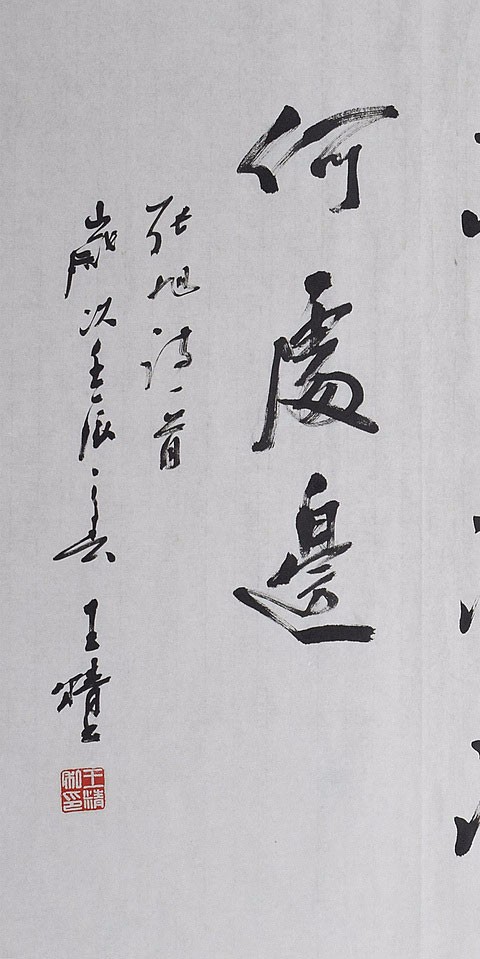 何處邊
張旭詩一首
歲次壬辰之春 王精书